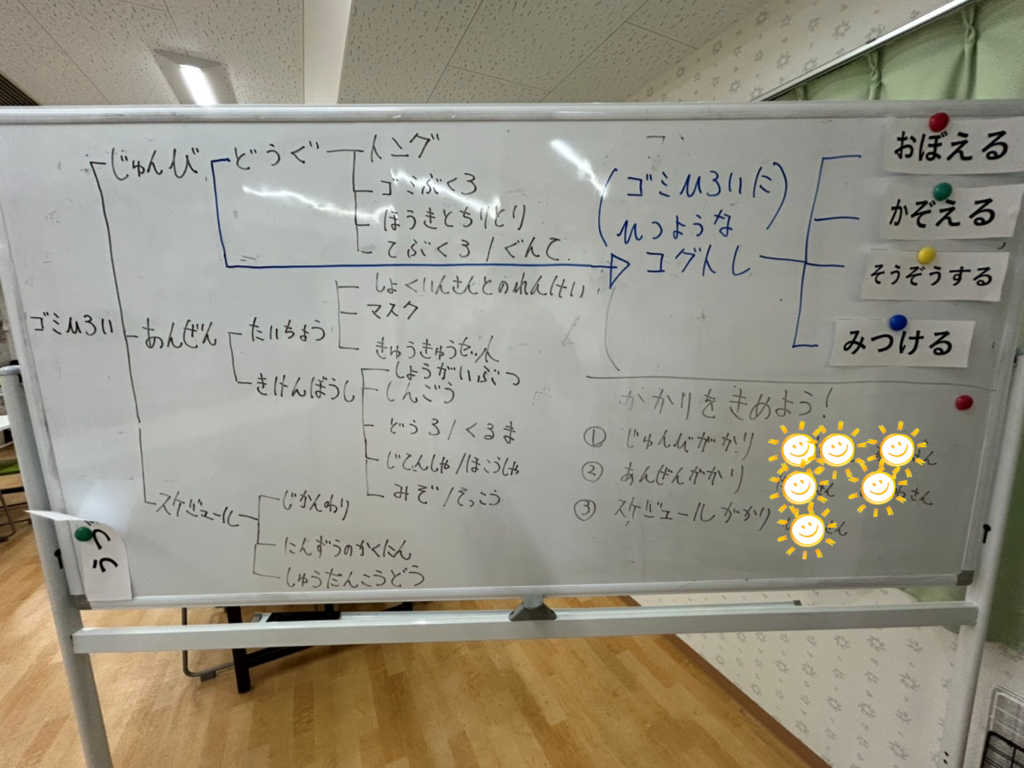 ゴミひろい
じゅんび
どうぐ
トング
ゴミぶくろ
ほうきとちりとり
てぶくろ/ぐんて
あんぜん
たいちょう
しょくいんさんとのれんけい
マスク
きゅうきゅうセット
きけんぼうし
しょうがいぶつ
しんごう
どうろ/くるま
じてんしゃ/ほこうしゃ
みぞ/そっこう
スケジュール
じかんわり
にんずうのかくにん
しゅうだんこうどう
(ゴミひろいに
ひつような)
コグトレ
おぼえる
かぞえる
そうぞうする
みつける
かかりをきめよう!
① じゅんびがかり
② あんぜんがかり
さん
③ スケジュールがかり